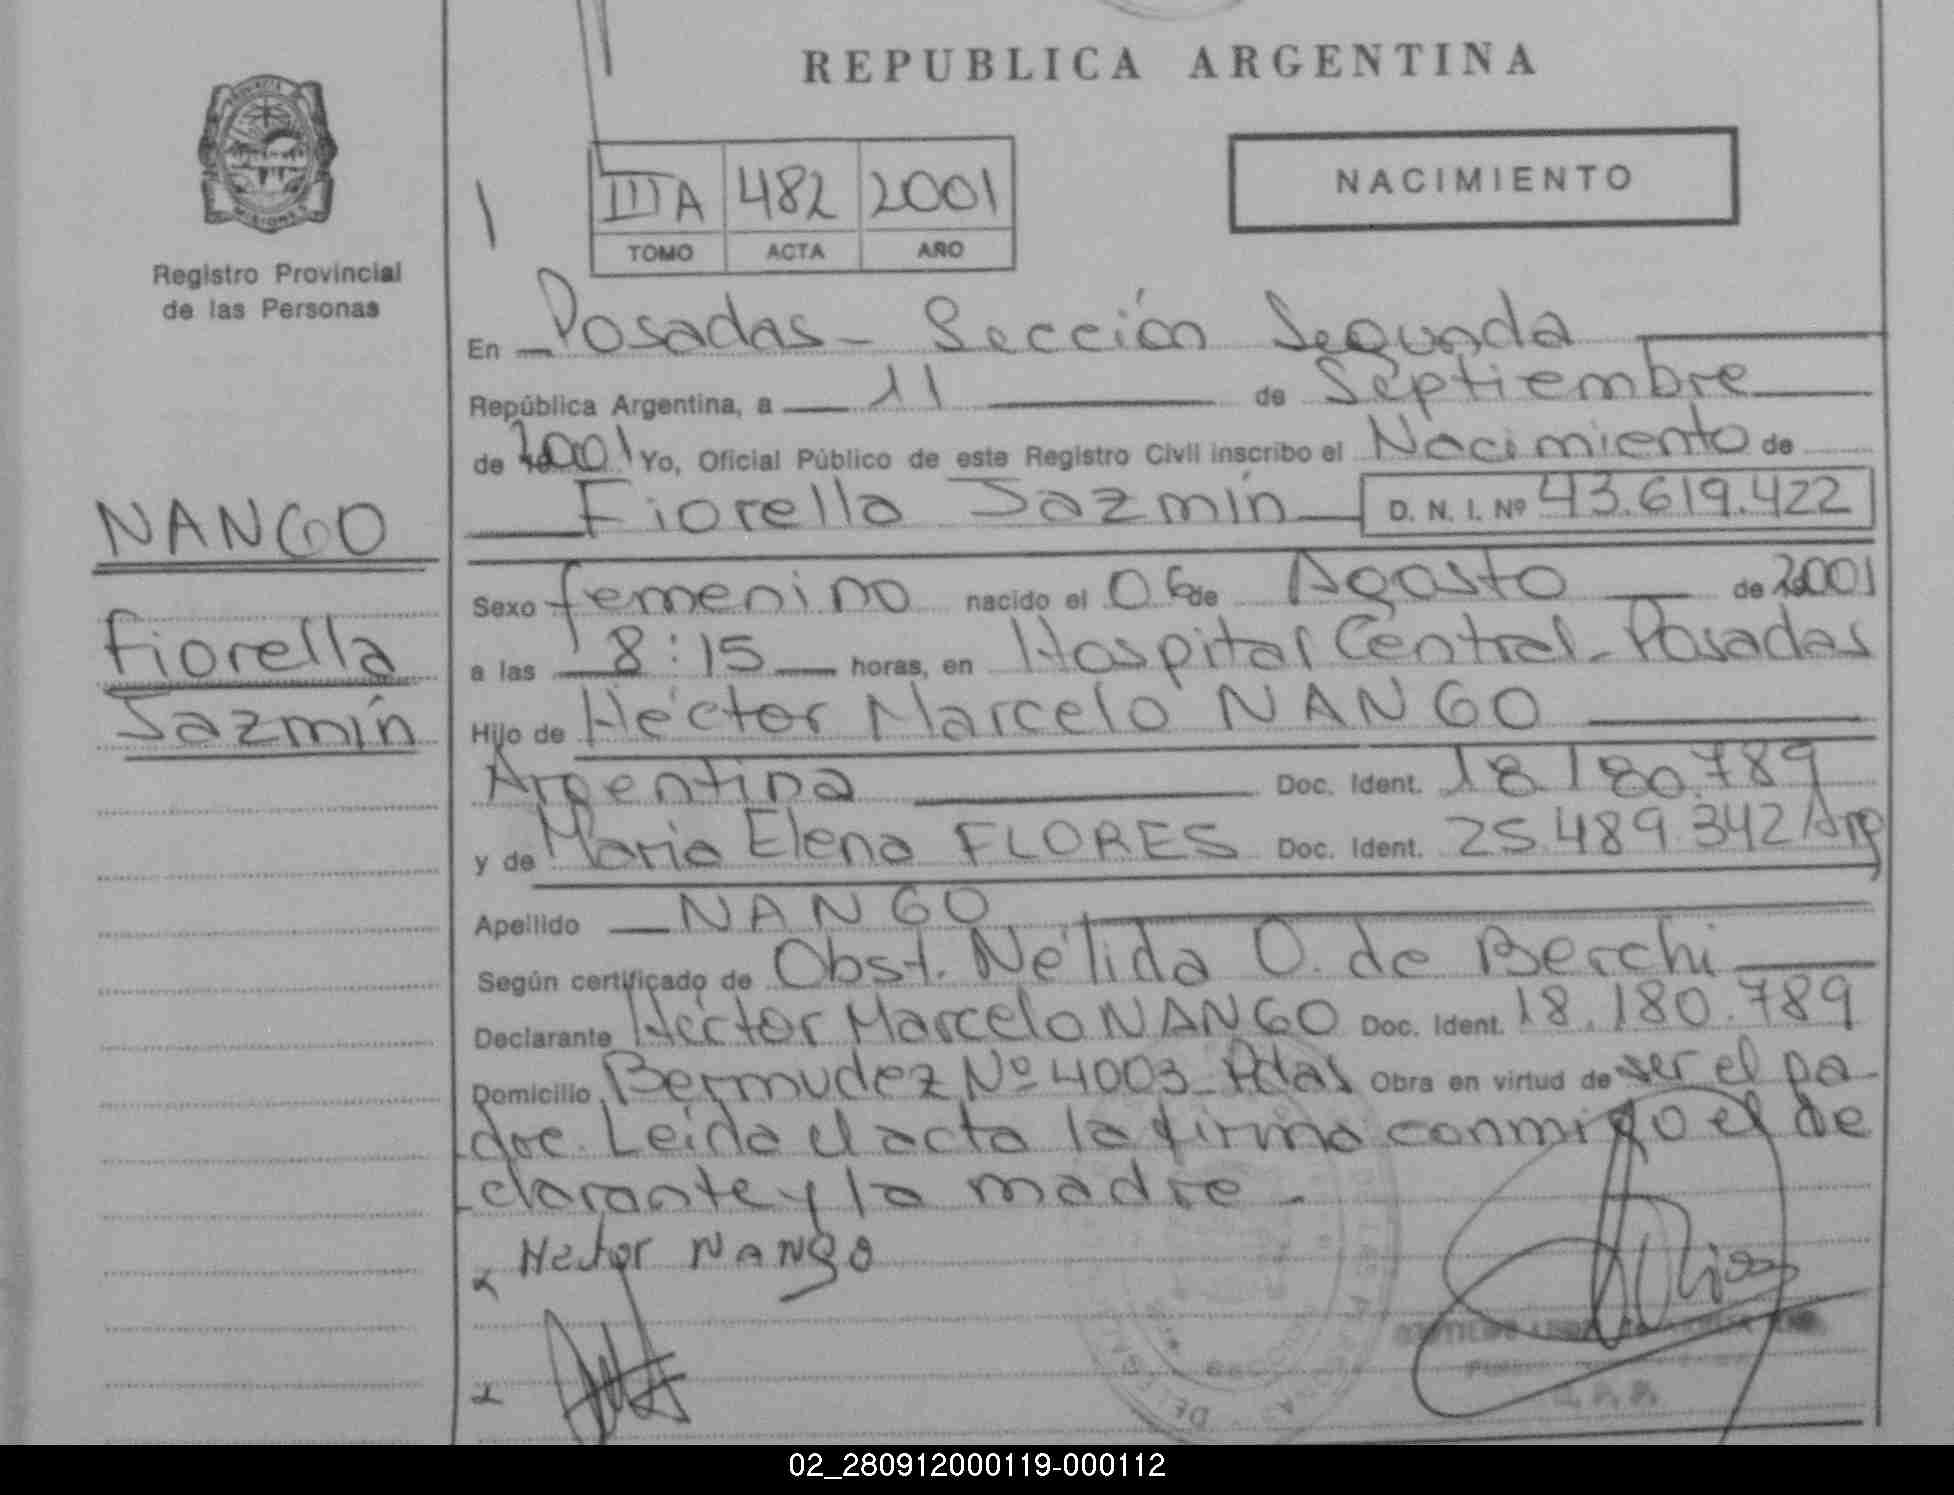 REPUBLICA ARGENTINA
PROVINCIA
MISIONES
Registro Provincial
de las Personas
IIIA 482 2001
TOMO ACTA AÑO
NACIMIENTO
En Posadas - Sección Segunda
República Argentina, a 11 de Septiembre
de 2001 Yo, Oficial Público de este Registro Civil inscribo el Nacimiento de
Fiorella Jazmín D. N. I. Nº 43.619.422
NANGO
Fiorella
Jazmín
Sexo femenino nacido el 06 de Agosto de 2001
a las 8:15 horas, en Hospital Central - Posadas
Hijo de Héctor Marcelo NANGO
Argentina Doc. Ident. 18.180.789
y de Maria Elena FLORES Doc. Ident. 25.489.342 Arg
Apellido NANGO
Según certificado de Obst. Nélida O. de Berchi
Declarante Héctor Marcelo NANGO Doc. Ident. 18.180.789
Domicilio Bermudez Nº 4003 - Pdas Obra en virtud de ser el pa-
dre. Leída el acta la firma conmigo el de
clarante y la madre -
Hector NANGO
02_280912000119-000112